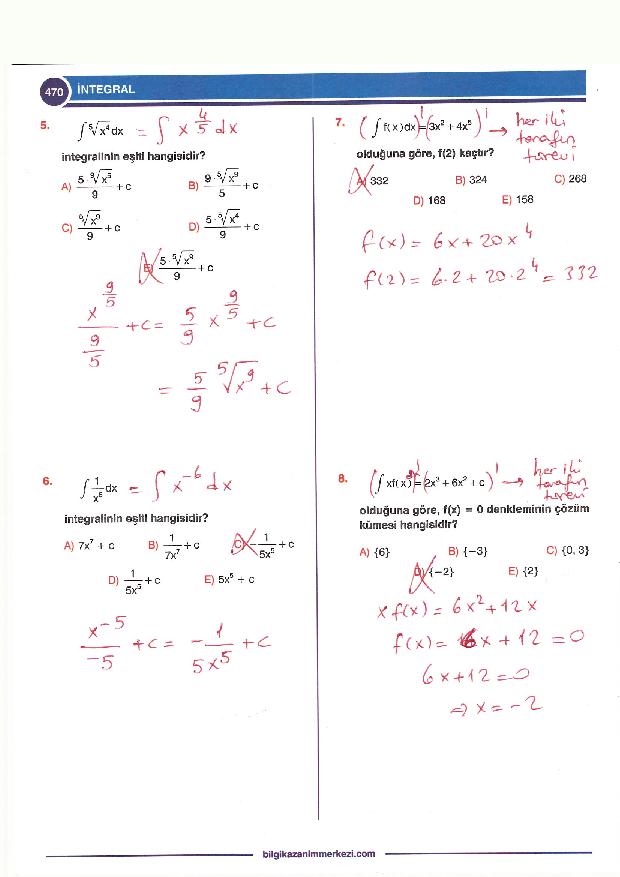 470 İNTEGRAL
5. ∫ ⁵√x⁴ dx = ∫ x^(4/5) dx
integralinin eşiti hangisidir?
A) 5·⁹√x⁵ / 9 + c B) 9·⁵√x⁹ / 5 + c
C) ⁵√x⁹ / 9 + c D) 5·⁵√x⁴ / 9 + c
E) 5·⁵√x⁹ / 9 + c
x^(9/5) / (9/5) + c = 5/9 x^(9/5) + c
= 5/9 ⁵√x⁹ + c
6. ∫ 1/x⁶ dx = ∫ x⁻⁶ dx
integralinin eşiti hangisidir?
A) 7x⁷ + c B) 1/7x⁷ + c C) -1/5x⁵ + c
D) 1/5x⁵ + c E) 5x⁵ + c
x⁻⁵/-5 + c = - 1/5x⁵ + c
7. (∫ f(x)dx)' = (3x² + 4x⁵)' → her iki
tarafın
türevi
olduğuna göre, f(2) kaçtır?
A) 332 B) 324 C) 268
D) 168 E) 158
f(x) = 6x + 20x⁴
f(2) = 6·2 + 20·2⁴ = 332
8. (∫ xf(x) dx)' = (2x³ + 6x² + c)' → her iki
tarafın
türevi
olduğuna göre, f(x) = 0 denkleminin çözüm
kümesi hangisidir?
A) {6} B) {−3} C) {0, 3}
D) {−2} E) {2}
x f(x) = 6x² + 12x
f(x) = 6x + 12 = 0
6x + 12 = 0
⇒ x = -2
bilgikazanimmerkezi.com